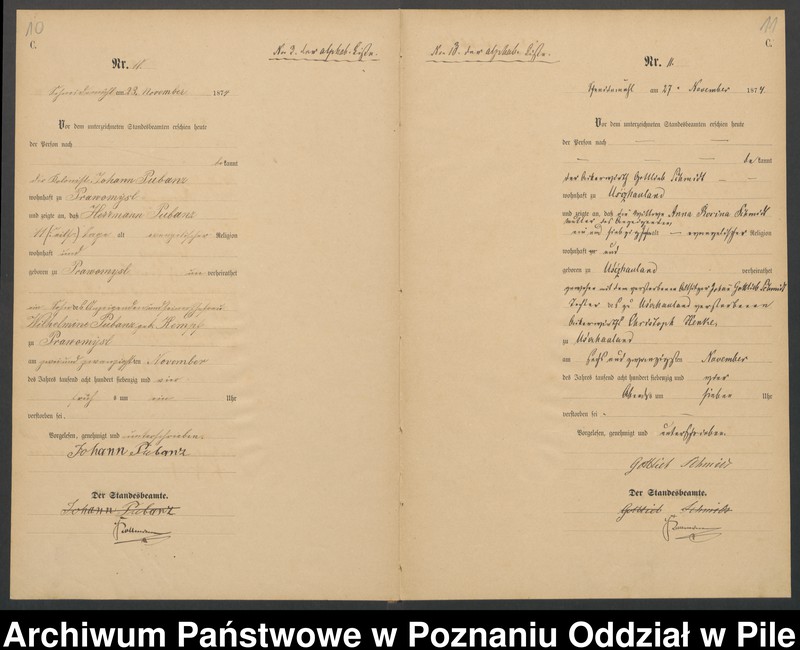 10
C.
No 9. der alphab. Liste.
Nr.
am 23. November 1874
Vor dem unterzeichneten Standesbeamten erschien heute
der Person nach
bekannt
Johann Pubanz
wohnhaft zu Prawomysl
und zeigte an, daß Herrmann Pubanz
Tage alt evangelischer Religion
wohnhaft und
geboren zu Prawomysl unverheirathet
Wilhelmine Pubanz geb.
zu Prawomysl
am zwei und zwanzigsten November
des Jahres tausend acht hundert siebenzig und vier
früh um Uhr
verstorben sei.
Vorgelesen, genehmigt und unterschrieben.
Johann Pubanz
Der Standesbeamte.
Johann Pubanz
11
C.
No 18. der alphab. Liste.
Nr. 11.
Schneidemühl am 27. November 1874
Vor dem unterzeichneten Standesbeamten erschien heute
der Person nach
bekannt
der Gottlieb Schmidt
wohnhaft zu
und zeigte an, daß die Wittwe Anna Rosina Schmidt
Mutter des Anzeigenden
ein und siebzig Jahr alt evangelischer Religion
wohnhaft und
geboren zu verheirathet
gewesen mit dem verstorbenen Johann Gottlieb Schmidt
Tochter des zu verstorbenen
Christoph
zu
am sechs und zwanzigsten November
des Jahres tausend acht hundert siebenzig und vier
Abends um sieben Uhr
verstorben sei.
Vorgelesen, genehmigt und unterschrieben.
Gottlieb Schmidt
Der Standesbeamte.
Gottlieb Schmidt
Archiwum Państwowe w Poznaniu Oddział w Pile